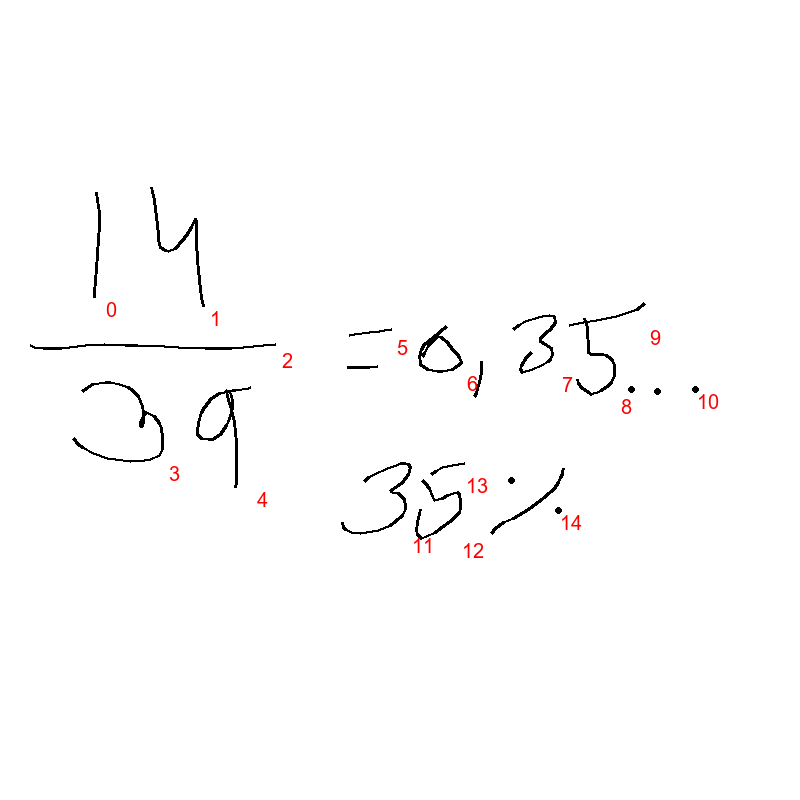 14
39
= 0,35...
35%
0
1
2
3
4
5
6
7
8
9
10
11
12
13
14